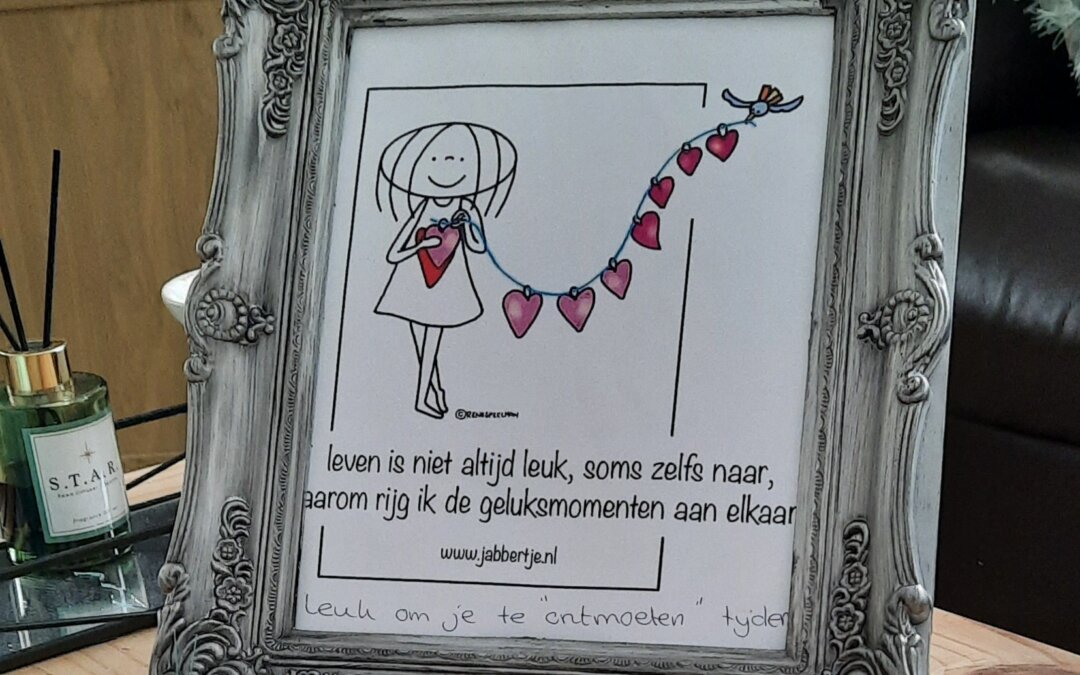 ©RENESPEELMAN
leven is niet altijd leuk, soms zelfs naar,
aarom rijg ik de geluksmomenten aan elkaar
www.jabbertje.nl
leuk om je te "ontmoeten" tyden
S.T.A.R.